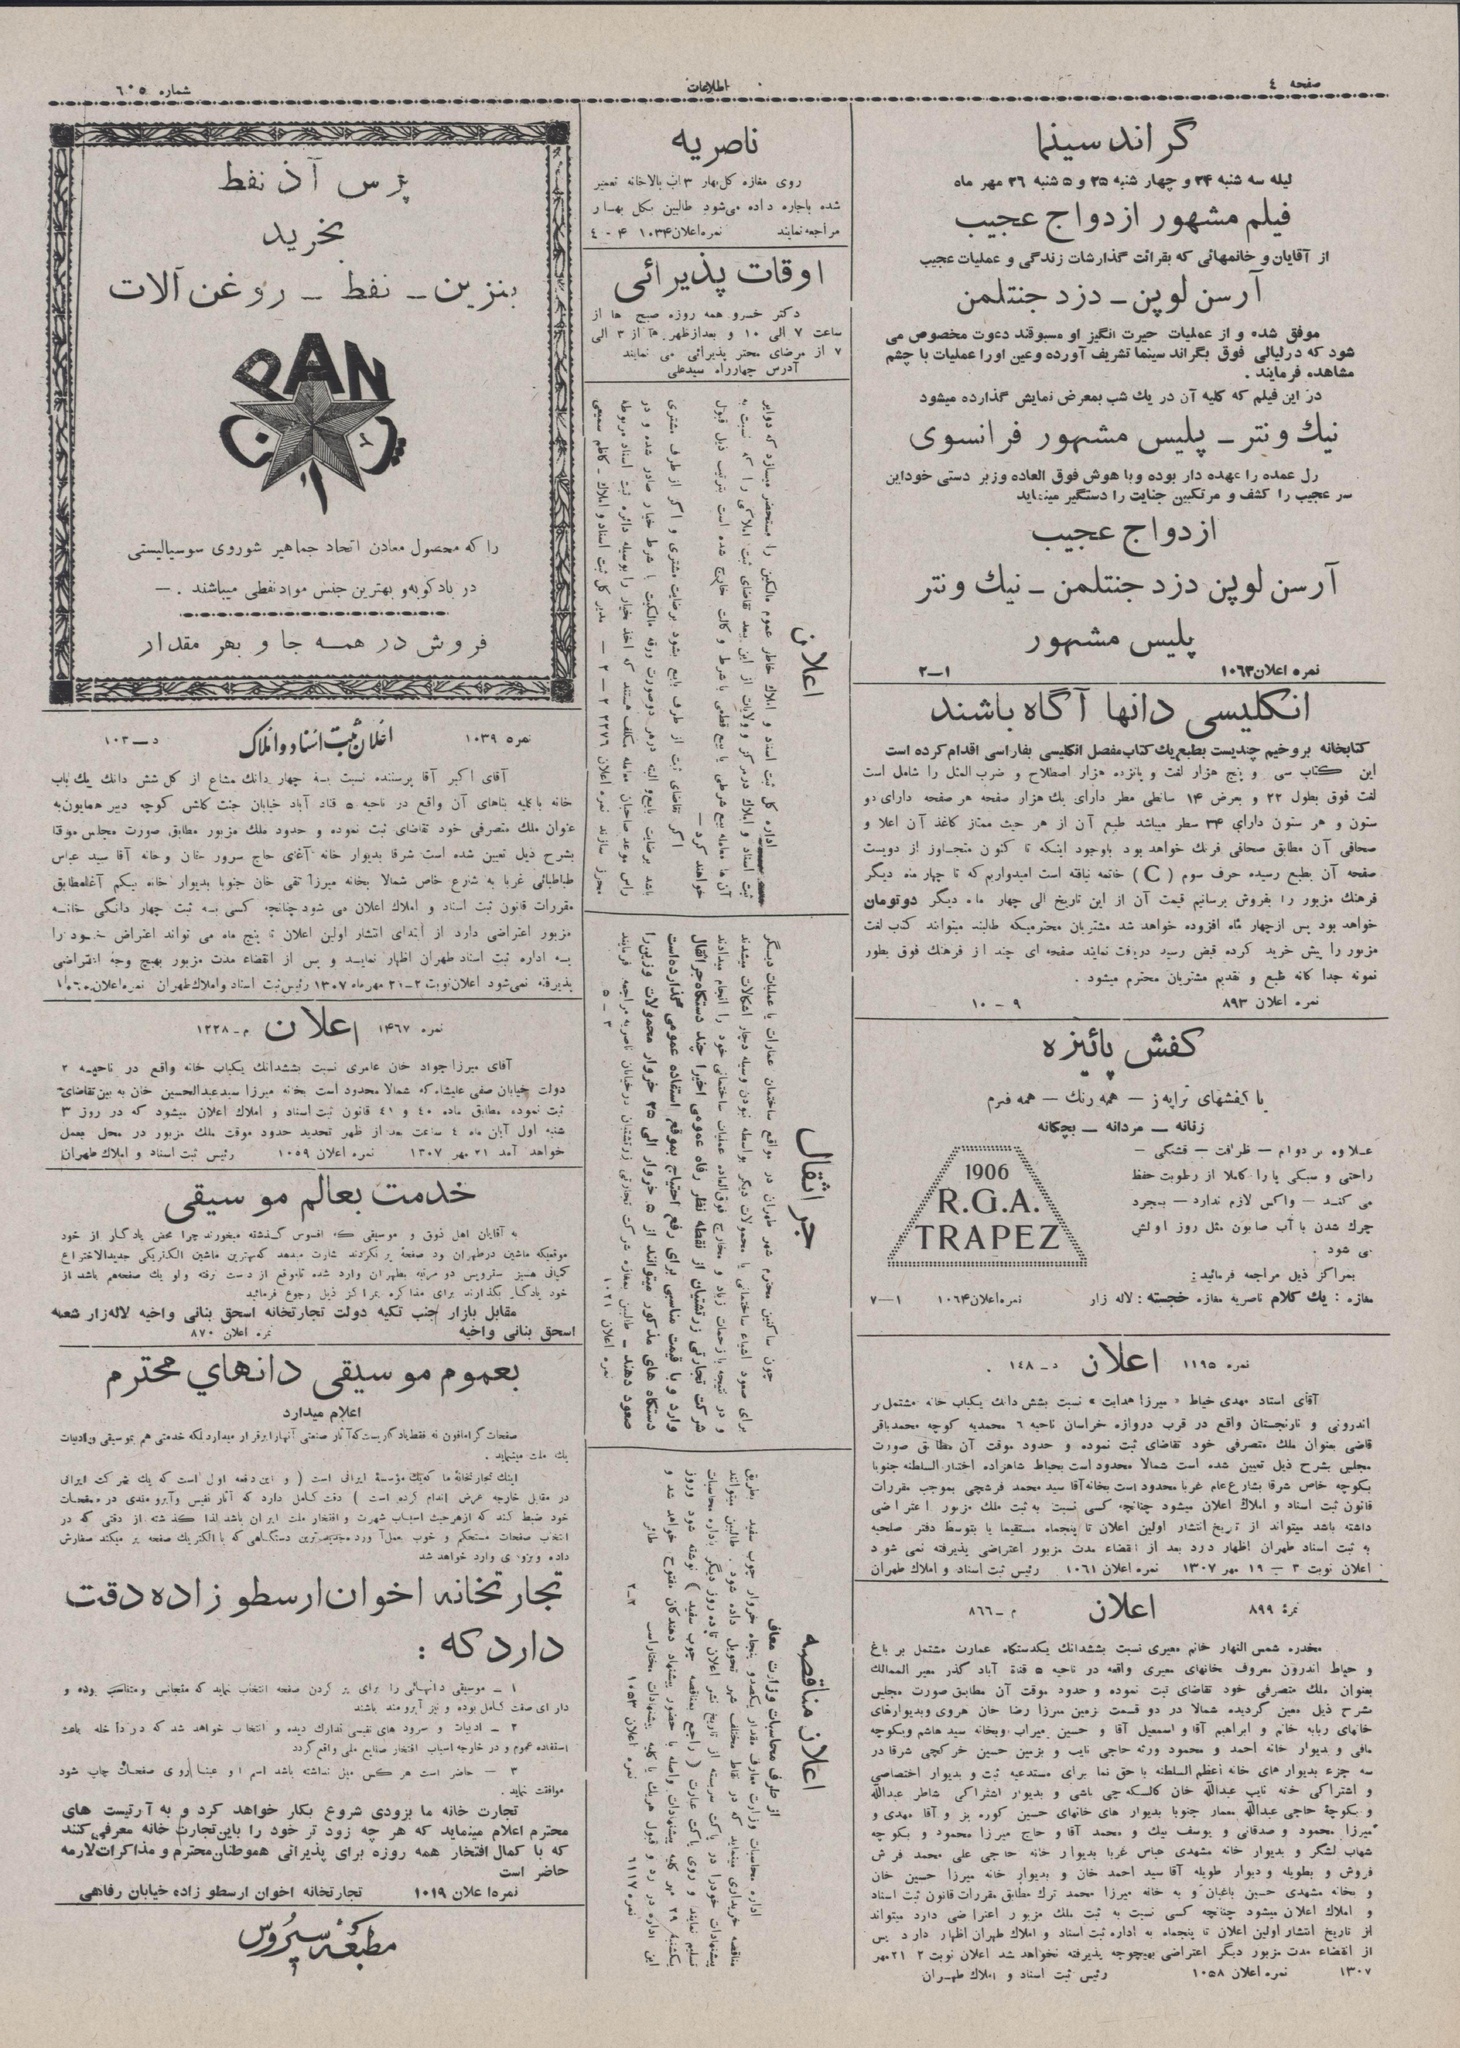 صفحه ٤
اطلاعات
شماره ٦٠٥
گراند سینما
لیله سه شنبه ۲۴ و چهار شنبه ۲۵ و ۵ شنبه ۲۶ مهر ماه
فیلم مشهور ازدواج عجیب
از آقایان و خانمهائی که بقرائت گذارشات زندگی و عملیات عجیب
آرسن لوپن ــ دزد جنتلمن
موفق شده و از عملیات حیرت انگیز او مسبوقند دعوت مخصوص می
شود که در لیالی فوق بگراند سینما تشریف آورده وعین اورا عملیات با چشم
مشاهده فرمایند .
در این فیلم که کلیه آن در یك شب بمعرض نمایش گذارده میشود
نیك ونتر ــ پلیس مشهور فرانسوی
رل عمده را عهده دار بوده وبا هوش فوق العاده وزبر دستی خوداین
سر عجیب را کشف و مرتکبین جنایت را دستگیر مینماید
ازدواج عجیب
آرسن لوپن دزد جنتلمن ــ نیك ونتر
پلیس مشهور
نمره اعلان ۱۰۶۳ ۱ــ۲
انکلیسی دانها آگاه باشند
کتابخانه بروخیم چندیست بطبع یك کتاب مفصل انکلیسی بفارسی اقدام کرده است
این کتاب سی و پنج هزار لفت و پانزده هزار اصطلاح و ضرب المثل را شامل است
لفت فوق بطول ۲۲ و بعرض ۱۴ سانطی مطر دارای یك هزار صفحه هر صفحه دارای دو
ستون و هر ستون دارای ۳۴ سطر میباشد طبع آن از هر حیث ممتاز کاغذ آن اعلا و
صحافی آن مطابق صحافی فرنك خواهد بود باوجود اینکه تا کنون متجاوز از دویست
صفحه آن بطبع رسیده حرف سوم ( C ) خاتمه نیافته است امیدواریم که تا چهار ماه دیگر
فرهنك مزبور را بفروش برسانیم قیمت آن از این تاریخ الی چهار ماه دیگر دوتومان
خواهد بود پس ازچهار ماه افزوده خواهد شد مشتریان محترمیکه طالبند میتوانند کتاب لفت
مزبور را پیش خرید کرده قبض رسید دریافت نمایند صفحه ای چند از فرهنك فوق بطور
نمونه جدا کانه طبع و تقدیم مشتریان محترم میشود .
نمره اعلان ۸۹۳ ۹ - ۱۰
کفش پائیزه
با کفشهای تراپه‌ز — همه رنك — همه فرم
زنانه — مردانه — بچکانه
علاوه بر دوام — ظرافت — قشنگی —
راحتی و سبکی پا را کاملا از رطوبت حفظ
می کند — واکس لازم ندارد — بمجرد
چرك شدن با آب صابون مثل روز اولش
می شود .
1906
R.G.A.
TRAPEZ
بمراکز ذیل مراجعه فرمائید :
مغازه : یك کلام ناصریه مغازه خجسته : لاله زار نمره اعلان ۱۰۶۴ ۱—۷
نمره ۱۱۹۵ اعلان د - ۱۴۸ .
آقای استاد مهدی خیاط « میرزا هدایت » نسبت بشش دانك یکباب خانه مشتمل بر
اندرونی و نارنجستان واقع در قرب دروازه خراسان ناحیه ۶ محمدیه کوچه محمدباقر
قاضی بعنوان ملك متصرفی خود تقاضای ثبت نموده و حدود موقت آن مطابق صورت
مجلس بشرح ذیل تعیین شده است شمالا محدود است بحیاط شاهزاده اختیار السلطنه جنوبا
بکوچه خاص شرقا بشارع عام غربا محدود است بخانه آقا سید محمد فرشچی بموجب مقررات
قانون ثبت اسناد و املاك اعلان میشود چنانچه کسی نسبت به ثبت ملك مزبور اعتراضی
داشته باشد میتواند از تاریخ انتشار اولین اعلان تا پنجماه مستقیما یا بتوسط دفتر صلحیه
به ثبت اسناد طهران اظهار دارد بعد از انقضاء مدت مزبور اعتراضی پذیرفته نمی شود
اعلان نوبت ۲ — ۱۹ مهر ۱۳۰۷ نمره اعلان ۱۰۶۱ رئیس ثبت اسناد و املاك طهران
نمرۀ ۸۹۹ اعلان م - ۸۶۶
مخدره شمس النهار خانم معیری نسبت بششدانك یکدستگاه عمارت مشتمل بر باغ
و حیاط اندرون معروف بخانهای معیری واقعه در ناحیه ۵ قناة آباد گذر معیر الممالك
بعنوان ملك متصرفی خود تقاضای ثبت نموده و حدود موقت آن مطابق صورت مجلس
بشرح ذیل معین گردیده شمالا در دو قسمت بزمین میرزا رضا خان هروی وبدیوارهای
خانهای ربابه خانم و ابراهیم آقا و اسمعیل آقا و حسین میراب وبخانه سید هاشم وبکوچه
مافی و بدیوار خانه احمد و محمود ورثه حاجی نایب و بزمین حسین خرکچی شرقا در
سه جزء بدیوار های خانه اعظم السلطنه با حق نما برای مستدعیه ثبت و بدیوار اختصاصی
و اشتراکی خانه نایب عبدالله خان کالسکه چی باشی و بدیوار اشتراکی شاطر عبدالله
و بکوچۀ حاجی عبدالله معمار جنوبا بدیوار های خانهای حسین کوره پز و آقا مهدی و
میرزا محمود و صدقانی و یوسف بیك و محمد آقا و حاج میرزا محمود و بکوچه
شهاب لشگر و بدیوار خانه مشهدی عباس غربا بدیوار خانه حاجی علی محمد فرش
فروش و بطویله و دیوار طویله آقا سید احمد خان و بدیوار خانه میرزا حسین خان
و بخانه مشهدی حسین باغبان و به خانه میرزا محمد ترك مطابق مقررات قانون ثبت اسناد
و املاك اعلان میشود چنانچه کسی نسبت به ثبت ملك مزبور اعتراضی دارد میتواند
از تاریخ انتشار اولین اعلان تا پنجماه به اداره ثبت اسناد و املاك طهران اظهار دارد پس
از انقضاء مدت مزبور دیگر اعتراضی بهیچوجه پذیرفته نخواهد شد اعلان نوبت ۲ ۲۱ مهر
۱۳۰۷ نمره اعلان ۱۰۵۸ رئیس ثبت اسناد و املاك طهران
ناصریه
روی مغازه کل بهار ۳ اب بالاخانه تعمیر
شده باجاره داده می‌شود طالبین بکل بهار
مراجعه نمایند نمره اعلان ۱۰۳۴ ۴ - ٤
اوقات پذیرائی
دکتر خسرو همه روزه صبح ها از
ساعت ۷ الی ۱۰ و بعدازظهر ها از ۳ الی
۷ از مرضای محتر پذیرائی می نمایند
آدرس چهارراه سیدعلی
اعلان
اداره کل ثبت اسناد و املاك خاطر عموم مالکین را مستحضر میسازد که دوایر
ثبت اسناد و املاك در مرکز و ولایات از این ببعد تقاضای ثبت املاکی را که نسبت به
آن ها معامله بیع شرطی یا بیع قطعی با شرط وکالت خارج شده است بترتیب ذیل قبول
خواهند کرد —
اگر تقاضای ثبت از طرف بایع بشود برضایت مشتری و اگر از طرف مشتری
باشد برضایت بایع و البته درهر دوصورت ورقه مالکیت با شرط خیار صادر شده و در
راس موعد صاحبان معامله مکلف هستند که اخذ بخیار را بوسیله دائره ثبت اسناد مربوطه
محرز سازند نمره اعلان ۲۲۷۶ ۲ — ۲ — مدیر کل ثبت اسناد و املاك ـ کاظم سمیعی
جر اثقال
چون ساکنین محترم شهر طهران در مواقع ساختمان عمارات یا عملیات دیگر
برای صعود اشیاء ساختمانی یا محمولات دیگر بواسطه نبودن وسیله دچار اشکالات میشدند
و در نتیجه با زحمات زیاد و مخارج فوق‌العاده عملیات ساختمانی خود را انجام میدادند
شرکت تجارتی زرتشتیان از نقطه نظر رفاه عمومی اخیرا چند دستگاه جر اثقال
وارد و با قیمت مناسبی برای رفع احتیاج بموقع استفاده عمومی گذارده است
دستگاه های مذکور میتواند از ۵ خروار الی ۲۵ خروار محمولات وزین را
صعود دهند — طالبین بمغازه شرکت تجارتی زرتشتیان درخیابان ناصریه مراجعه فرمایند
نمره اعلان ۱۰۲۱ ۳ - ۵
اعلان مناقصه
از طرف محاسبات وزارت معارف
اداره محاسبات وزارت معارف مقدار یکصدو پنجاه خروار چوب سفید بطریق
مناقصه خریداری مینماید که در نقاط مختلف شهر تحویل داده شود . طالبین میتوانند
پیشنهادات خودرا در پاکت سربسته از تاریخ نشر اعلان تا ده روز دیگر باداره محاسبات
تسلیم نمایند و روی پاکت عبارت ( راجع بمناقصه چوب سفید ) نوشته شود وروز
یکشنبۀ ۲۹ مهر کلیه پیشنهادات واصله با حضور پیشنهاد دهندکان مفتوح خواهد شد و
این اداره در رد و قبول هریك یا کلیه پیشنهادات مختاراست
نمره ۶۱۱۷ نمره اعلان ۱۰۵۳ ۲ـ۲
بزس آذ نفط
بخرید
بنزین ــ نفط ــ روغن آلات
PAN
را که محصول معادن اتحاد جماهیر شوروی سوسیالیستی
در بادکوبه و بهترین جنس مواد نفطی میباشند . —
فروش در همه جا و بهر مقدار
نمره ۱۰۳۹ اعلان ثبت اسناد و املاك د—۱۰۳
آقای اکبر آقا پرستنده نسبت بسه چهار دانك مشاع از کل شش دانك یك باب
خانه با کلیه بناهای آن واقع در ناحیه ۵ قناد آباد خیابان جنت کاشی کوچه دبیر همایون به
عنوان ملك متصرفی خود تقاضای ثبت نموده و حدود ملك مزبور مطابق صورت مجلس موقتا
بشرح ذیل تعیین شده است شرقا بدیوار خانه آغای حاج سرور خان وخانه آقا سید عباس
طباطبائی غربا به شارع خاص شمالا بخانه میرزا تقی خان جنوبا بدیوار خانه بیکم آغا مطابق
مقررات قانون ثبت اسناد و املاك اعلان می شود چنانچه کسی به ثبت چهار دانگی خانه
مزبور اعتراضی دارد از ابتدای انتشار اولین اعلان تا پنج ماه می تواند اعتراض خود را
به اداره ثبت اسناد طهران اظهار نماید و پس از انقضاء مدت مزبور بهیچ وجه اعتراضی
پذیرفته نمی‌شود اعلان نوبت ۲-۲۱ مهرماه ۱۳۰۷ رئیس ثبت اسناد واملاك طهران نمره اعلان ۱۰۶۰
نمره ۱۴۶۷ اعلان م - ۱۲۲۸
آقای میرزا جواد خان عامری نسبت بششدانك یکباب خانه واقع در ناحیه ۲
دولت خیابان صفی علیشاه که شمالا محدود است بخانه میرزا سید عبدالحسین خان به بین تقاضای
ثبت نموده مطابق ماده ۴۰ و ۴۱ قانون ثبت اسناد و املاك اعلان میشود که در روز ۳
شنبه اول آبان ماه ٤ ساعت بعد از ظهر تحدید حدود موقت ملك مزبور در محل بعمل
خواهد آمد ۲۱ مهر ۱۳۰۷ نمره اعلان ۱۰۵۹ رئیس ثبت اسناد و املاك طهران
خدمت بعالم موسیقی
به آقایان اهل ذوق و موسیقی که افسوس گذشته میخورند چرا محض یادگار از خود
موقعیکه ماشین درطهران بود صفحۀ پر نکردند بشارت میدهد که بهترین ماشین الکتریکی جدیدالاختراع
کمپانی هیسر سترویس دو مرتبه بطهران وارد شده تا موقع از دست نرفته ولو یك صفحه‌هم باشد از
خود یادگار بگذارند برای مذاکره بمراکز ذیل رجوع فرمائید
مقابل بازار جنب تکیه دولت تجارتخانه اسحق بنانی واخیه لاله‌زار شعبه
اسحق بنانی واخیه نمره اعلان ۸۷۰
بعموم موسیقی دانهاي محترم
اعلام میدارد
صفحات گرامافون نه فقط یادگاریست که آثار صنعتی آنها را برقرار میدارد بلکه خدمتی هم بموسیقی و ادبیات
یك ملت مینماید .
اینك تجارتخانۀ ما که یك مؤسسۀ ایرانی است ( و این دفعه اول است که یك شرکت ایرانی
در مقابل خارجه عرض اندام کرده است ) دقت کامل دارد که آثار نفیس وآبرومندی در صفحات
خود ضبط کند که از هر حیث اسباب شهرت و افتخار ملت ایران باشد لذا گذشته از دقتی که در
انتخاب صفحات مستحکم و خوب بعمل آورد مجدیدترین دستگاهی که با الکتریك صفحه پر میکند سفارش
داده و بزودی وارد خواهد شد
تجارتخانه اخوان ارسطو زاده دقت
دارد که :
۱ ــ موسیقی دانهائی را برای پر کردن صفحه انتخاب نماید که متجانس ومتناسب بوده و
دارای صفت کامل بوده و نیز آبرومند باشند
۲ ــ ادبیات و سرود های نفیسی تدارك دیده و انتخاب خواهد شد که در داخله باعث
استفاده عموم و در خارجه اسباب افتخار صنایع ملی واقع گردد
۳ — حاضر است هر کس میل نداشته باشد اسم او عینا روی صفحات چاپ شود
موافقت نماید .
تجارت خانه ما بزودی شروع بکار خواهد کرد و به آرتیست های
محترم اعلام مینماید که هر چه زود تر خود را باین تجارت خانه معرفی کنند
که با کمال افتخار همه روزه برای پذیرائی هموطنان محترم و مذاکرات لازمه
حاضر است
نمره اعلان ۱۰۱۹ تجارتخانه اخوان ارسطو زاده خیابان رفاهی
مطبعۀ سیروس